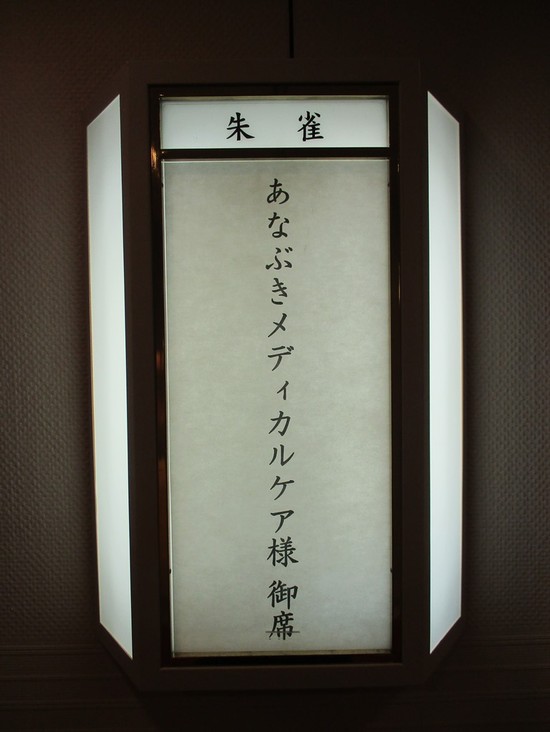 朱雀
あなぶきメディカルケア様 御席